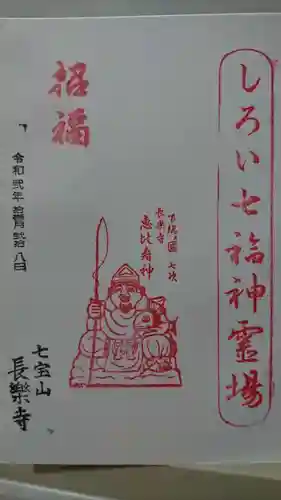 しろい七福神霊場
招福
下総国 七次
長楽寺
恵比寿神
令和弐年拾月弐拾八日
七宝山
長樂寺